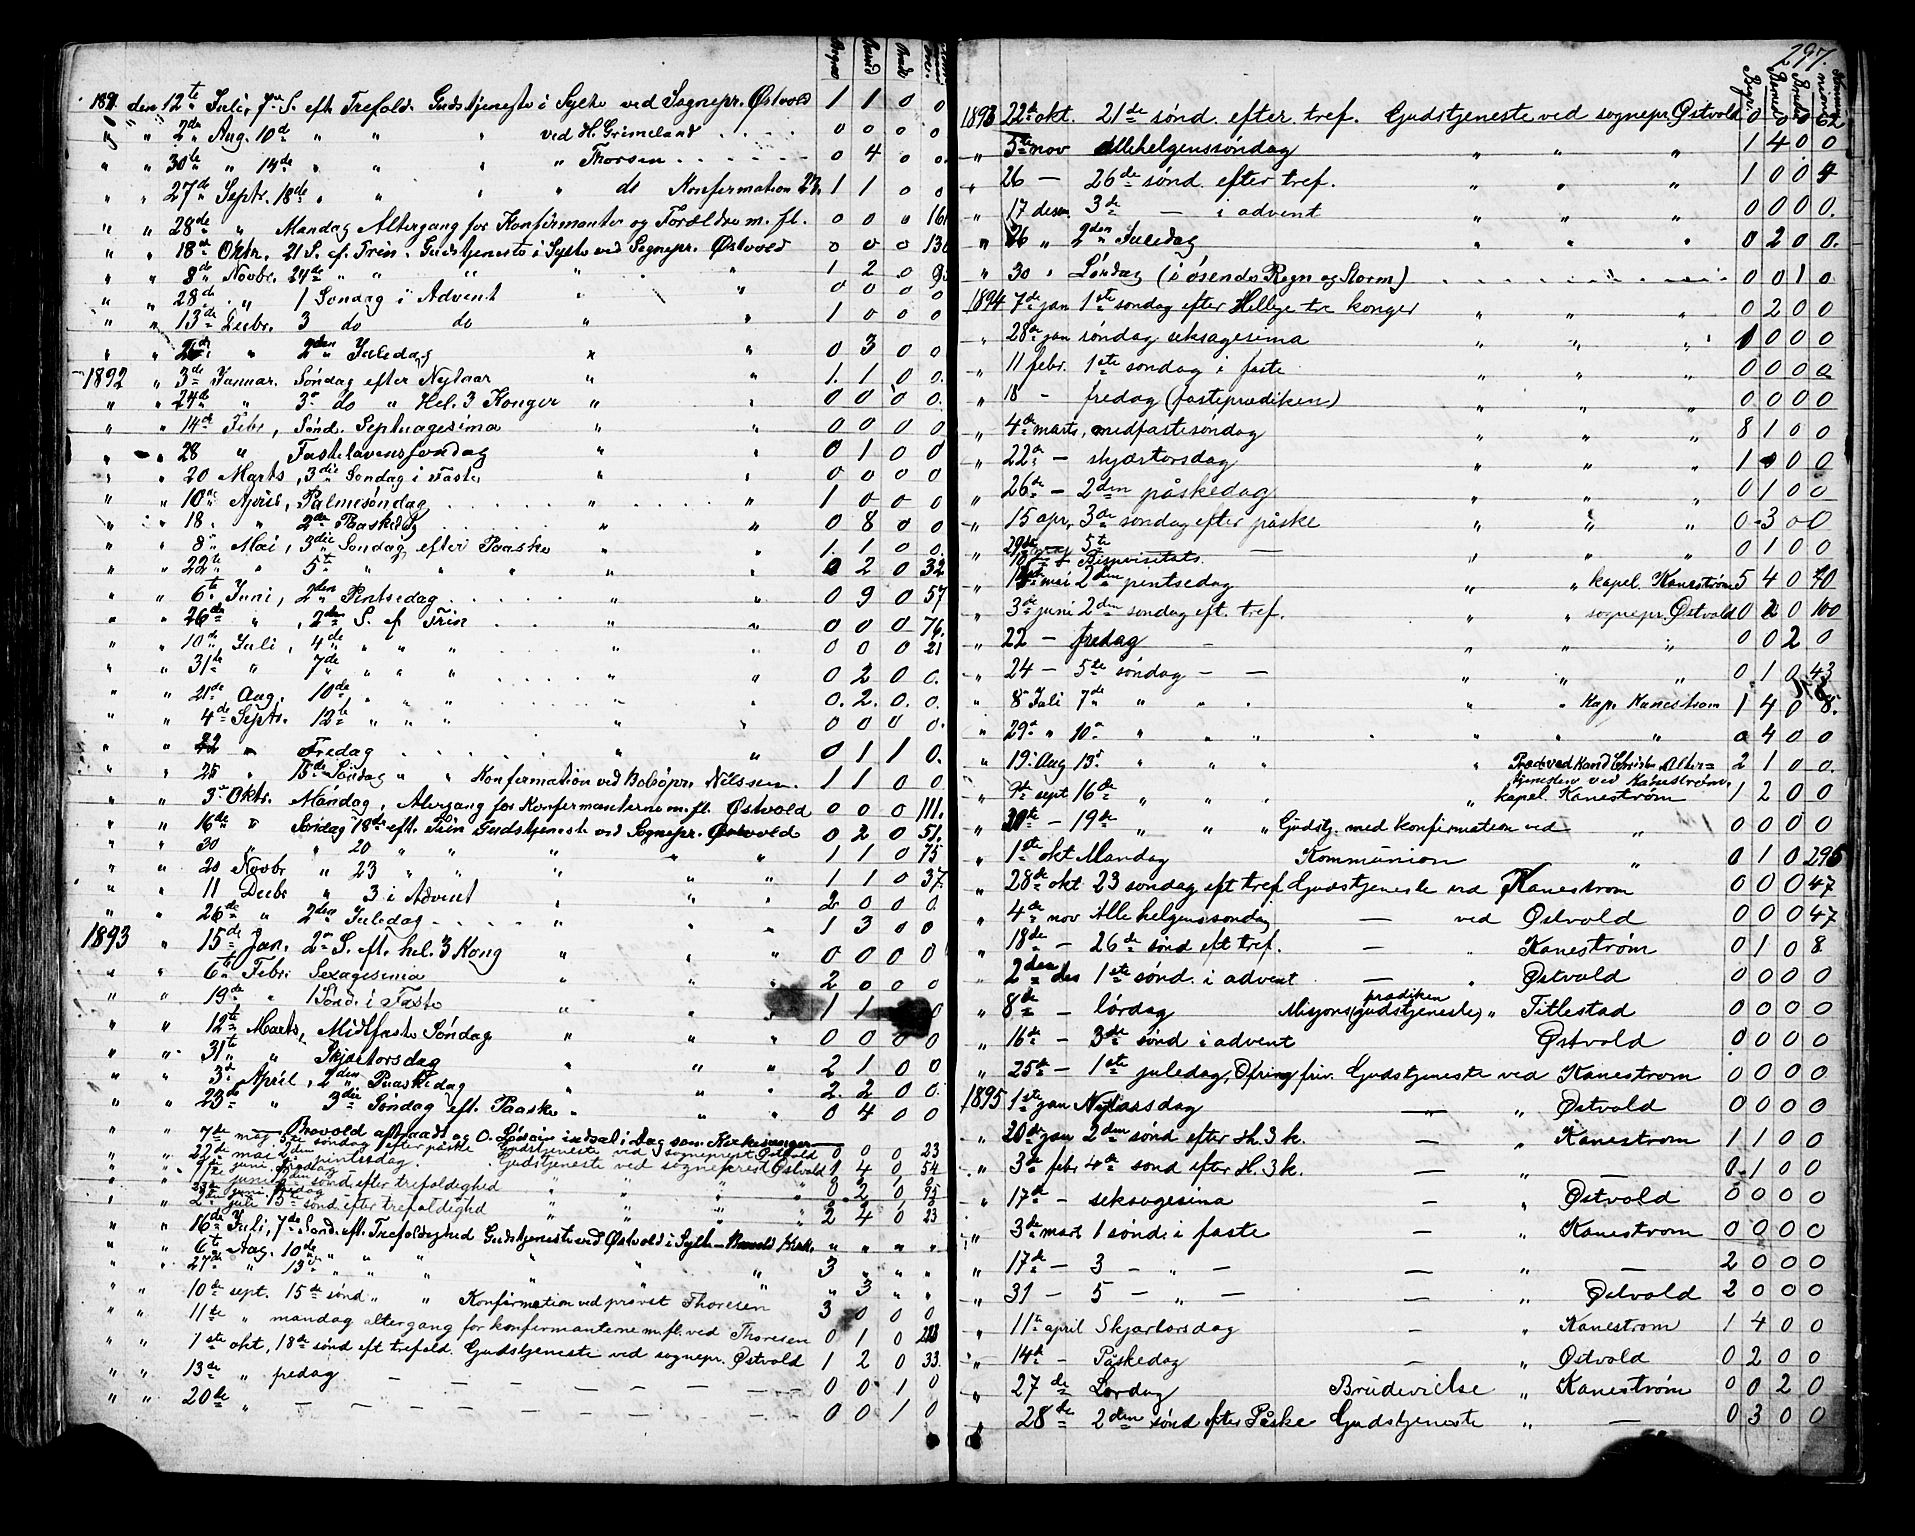 Barnd Brude
1891. den 12te Juli, 7de S. eft. Trefold. Gudstjeneste i Sylte ved Sognepr. Østvold 1 1 0 0
" " 2de Aug. 10de " " " ved H. Grimeland 0 0 0 0
" " 30te " 14de " " " " Thorsen 0 4 0 0.
" " 27de Septr. 18de " " " " do Konfirmation 1 1 0 0
" " 28de " Mandag Altergang for Konfirmanter og Forældre m. fl. 0 0 " 16
" " 18de Oktr. 21 S. ef. Trin. Gudstjeneste i Sylte ved Sognepr. Østvold 0 0 0 13
" " 8de Novbr. 24de " " " " " 1 2 0 9
" " 28de " 1 Søndag i Advent " " 0 0 0 0
" " 13de Decbr. 3 do do " " 1 0 0 0
" " 26de " 2den Juledag " " 0 3 0 0
1892 " 3de Januar. Søndag efter Nytaar " " 1. 1 0 0.
" " 24de " 3de do " Hel. 3 Konger " " 0 0 0 0.
" " 14de Febr, Sønd. Septuagesima " " 0 0 0 0
" " 28 " Fastelavenssøndag " " 0 1 0 0
" " 20 Marts, 3die Søndag i Faste " " 0 0 0 0
" " 10de April, Palmesøndag " " 1 0 0 0
" " 18. " 2den Paaskedag " " 0 8 0 0
" " 8de Mai, 3die Søndag efter Paaske " " 1. 1 0 0.
" " 22de " 5te " " " " " 0 2 0 32
" " 6te Juni, 2den Pintsedag " " 0 9 0 57
" " 26de " , 2den S. ef. Trin " " 0 0 0 76.
" " 10de Juli, 4de " " " " " 0 0 0 21
" " 31te " 7de " " " " " 0 2 0 0.
" " 21de Aug. 10de " " " " " 0. 2. 0. 0.
" " 4de Septr. 12te " " " " " 0 0 0 0.
" " 22 " Fredag " " 0 1 1 0.
" " 25 " 15de Søndag " " Konfirmation ved Nilssen. 1 1 0 0
" " 3de Oktr. Mandag, Altergang for Konfirmanterne m. fl. Østvold 0 0 0 111.
" " 16de " Søndag 18de eft. Trin Gudstjeneste ved Sognepr. Østvold 0 2 0 51.
" " 30 " " 20 " " " " " 1 1 0 75
" " 20 Novbr " 23 " " " " " 1 1 0 37.
" " 11 Decbr " 3 i Advent " " " 2 0 0 0
" " 26de " 2den Juledag " " " 1 3 0 0
1893 " 15de Jan. 2den S. eft. hel. 3 Kong " " " 0 0 0 0
" " 6te Febr. Sexagesima " " " 2 0 0 0
" " 19de " 1 Sønd. i Faste " " " 1 1 0
" " 12te Marts, Midtfaste Søndag " " " 0 0 0 0
" " 31te " Skjærtorsdag " " " 2 1 0 0
" " 3de April, 2den Paaskedag " " " 2. 2 0 0.
" " 23de " 3die Søndag eft. Paaske " " " 0 4 0 0
" " Brovold aftraadt og O. indsat i Dag som Kirkesanger
7de maj 5te søndag efter påske Gudstjeneste ved sogneprest Østvold 0 0 0 23
" " 22de mai 2den pintsedag. Gudstjeneste ved sogneprest Østvold 1 4 0 54
" " 9de juni fredag
" " juni sønd efter trefoldighed " " " " 0 2 0 95
" " 23de juni fredag
" " 2den juli 5te sønd efter trefoldighed " " " " 2 4 0 23
" " 16de Juli, 7de Sønd. eft. Trefoldighed Gudstjeneste ved Østvold i Sylte " " " "
" " 6te Aug. 10de " " " " " "
" " 27de " 13de " " " " " " 3 " " "
" " 10de sept. 15de sønd " " Konfirmation ved provst Thoresen " 3 " "
" " 11te " mandag altergang for konfirmanterne m. fl. ved Thoresen 3 0 0 0
" " 1ste okt, 18de sønd eft trefold. Gudstjeneste ved sognepr. Østvold 0 1 0
" " 13de " fredag 1 2 0 33.
" " 20de " 0 0 1 0
0 0 1 0
297.
1893 22de okt. 21de sønd. efter tref. Gudstjeneste ved sognepr. Østvold 0 0 0 62
" 5te nov Allehelgenssøndag " " " 1 4 0 0
" 26 — 26de sønd. efter tref. " " " 1 0 0 4
" 17 desem. 3de — i advent " " " 0 0 0 0.
" 26 " 2den Juledag " " " 0 2 0 0.
" 30 " Søndag (i øsende Regn og Storm) 0 0 1 0
1894 7de jan 1ste søndag efter Hellige tre konger " " " 0 2 0 0
" 28de jan søndag seksagesima " " " 1 0 0 0
" 11 febr. 1ste søndag i faste " " " 0 0 0 0
" 18 — fredag (fasteprædiken) " " " 0 0 0 0
" 4de marts, midfastesøndag " " " 8 1 0 0
" 22de — skjærtorsdag " " " 1 0 0 0
" 26de — 2den påskedag " " " 0 1 0 0
" 15 apr. 3de søndag efter påske " " " 0 3 0 0
" 29de 5te — " " " 0 1 0 0
" Bispevisitats.
" mai 2den pintsedag " " kapel. Kanestrøm 5 4 0 70
" 3de juni 2den søndag eft. tref. " " sognepr. Østvold 0 2 0 100
" 22 — fredag — " " " 0 0 2 0
" 24 — 5te søndag — — " " " 0 1 0 43
" 8de Juli 7de " " " " " Kap. Kanestrøm 1 4 0 8.
" 29de " 10de " " " " " " 0 4 0 0
" 19de Aug 13de " " " " Præd ved Kand. Alter= 2 1 0 0.
tjenesten ved Kanestrøm.
" 9de sept 16de " " " " kapel. Kanestrøm 1 2 0 0
" 30te — 19de " " " Gudstj. med konfirmation ved " 0 0 0 0
" 1ste okt Mandag Kommunion " 0 1 0 295
" 28de okt 23 søndag eft tref. Gudstjeneste ved Kanestrøm 0 0 0 47
" 4de nov Alle helgenssøndag — ved Østvold 0 0 0 47
" 18de — 26de sønd eft tref. — " Kanestrøm 0 1 0 8
" 2den des 1ste sønd. i advent — " Østvold 0 0 0 0
" 8de — lørdag Misjons(gudstjeneste) prædiken " Titlestad 0 0 0 0
" 16de — 3de sønd i advent Østvold 0 0 0 0
" 25de — 1ste juledag, Ofring priv. Gudstjeneste ved Kanestrøm 0 0 0 0
1895 1ste jan Nytaarsdag — " Østvold 0 0 0 0
" 20de jan 2den sønd efter H. 3 k. — " Kanestrøm 1 1 0 0
" 3de febr 4de sønd efter H. 3 k. — " — 0 1 0 0
" 17de — seksagesima — " Østvold 0 0 0 0
" 3de marts 1 sønd i faste — " Kanestrøm 0 0 0 0
" 17de — 3 — " — — " — 2 0 0 0
" 31 — 5 — " — — " Østvold 2 0 0 0
" 11te april Skjærtorsdag — " Kanestrøm 1 4 0 0
" 14de — Påskedag — " Østvold 0 2 0 0
" 27de — Lørdag Brudevielse " Kanestrøm 0 0 2 0
" 28de 2den sønd efter Påske Gudstjeneste " — 0 3 0 0